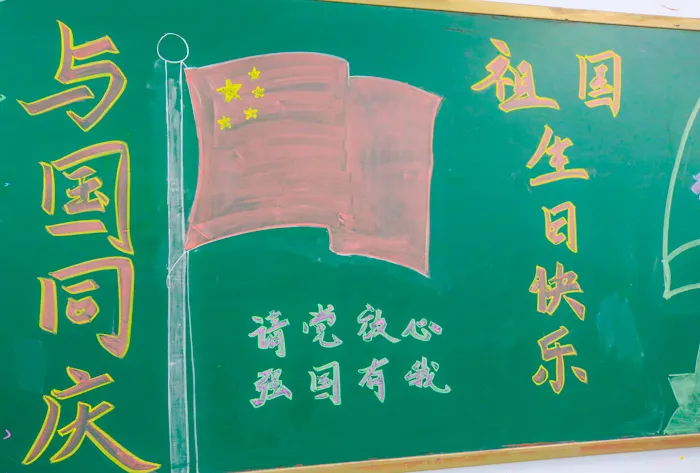 与国同庆
祖国
生日快乐
请党放心
强国有我